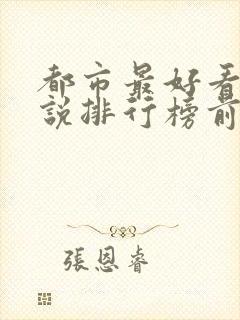 都市最好看
說排行榜前
張恩睿